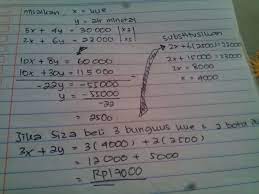 misalkan, x = kue
y = air mineral
5x + 4y = 30000 | x2
2x + 6y = 23000 | x5
10x + 8y = 60000
10x + 30y = 115000
-22y = -55000
y = -55000
-22
= 2500
substitusikan
2x + 6(2500) = 23000
2x + 15000 = 23000
2x = 8000
x = 4000
Jika Siza beli 3 bungkus kue & 2 botol
3x + 2y = 3(4000) + 2(2500)
= 12000 + 5000
= Rp17000